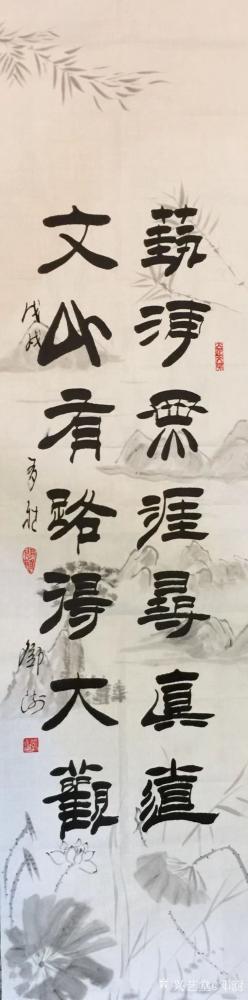 藝海無涯尋真道
文山有路得大觀
戊戌